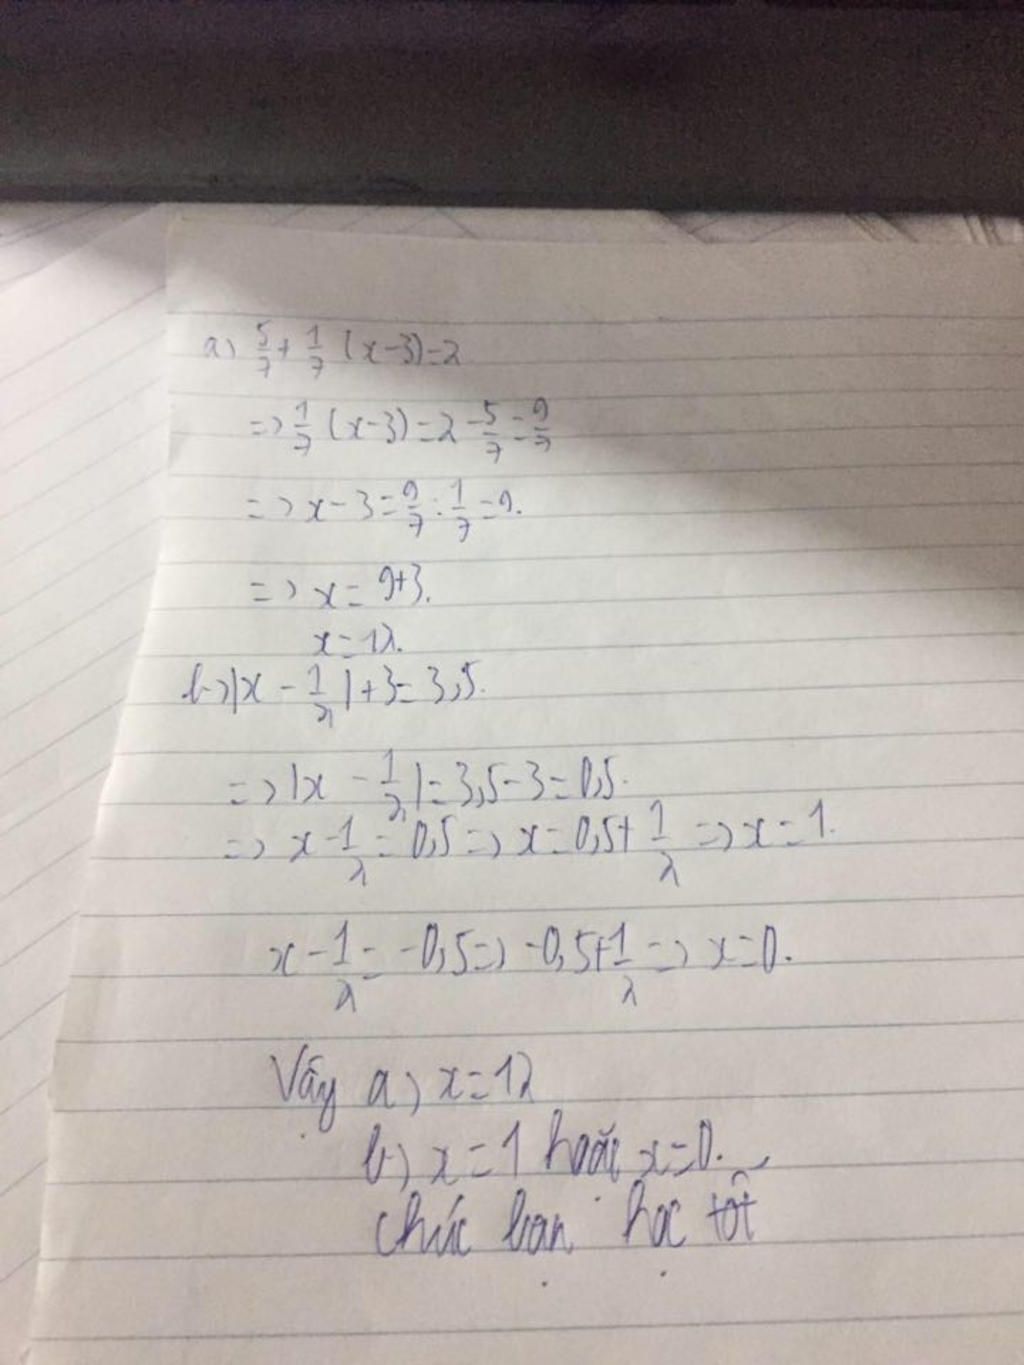 a) 5/7 + 1/7 (x-3)=2
=> 1/7 (x-3)=2-5/7=9/7
=> x-3=9/7:1/7=9.
=> x=9+3.
x=12.
b) |x-1/2|+3=3,5.
=> |x-1/2|=3,5-3=0,5.
=> x-1/2=0,5=> x=0,5+1/2 => x=1.
x-1/2=-0,5=> -0,5+1/2 => x=0.
Vậy a) x=12
b) x=1 hoặc x=0.
chúc bạn học tốt